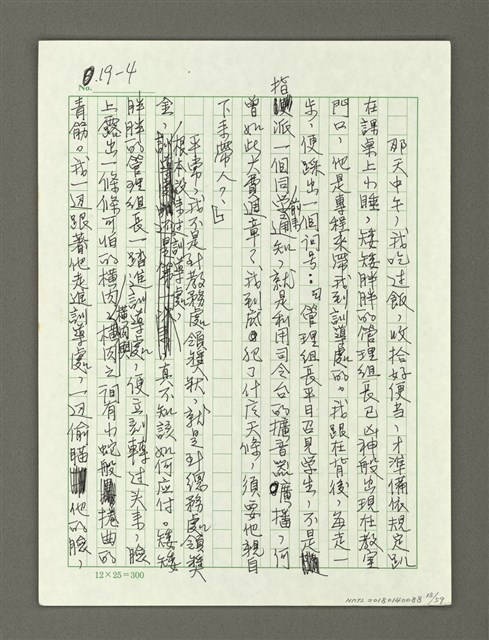 19-4
No.
那天中午，我吃过飯，收拾好便当，才準備依規定趴
在課桌上小睡，矮矮胖胖的管理組長已凶神般出現在教室
門口，他是專程來帶我到訓導處的。我跟在背後，每走一
步，便踩出一個问号：「管理組長平日召見学生，不是
指派一個同学前來通知，就是利用司令台的擴音器廣播，何
曾如此大費週章？我到底犯了什広天條，須要他親自
下來帶人？」
平常，我不是到教務處領獎狀，就是到總務處領獎
金，根本没來过訓導處，真不知該如何应付。矮矮
胖胖的管理組長一踏進訓導處，便立刻轉过头來，臉
上露出一條條可怕的橫肉，橫肉與橫肉之间有小蛇般捲曲的
青筋。我一边跟著他走進訓導處，一边偷瞄他的臉，
12×25=300
NMTL20180140088 13/59